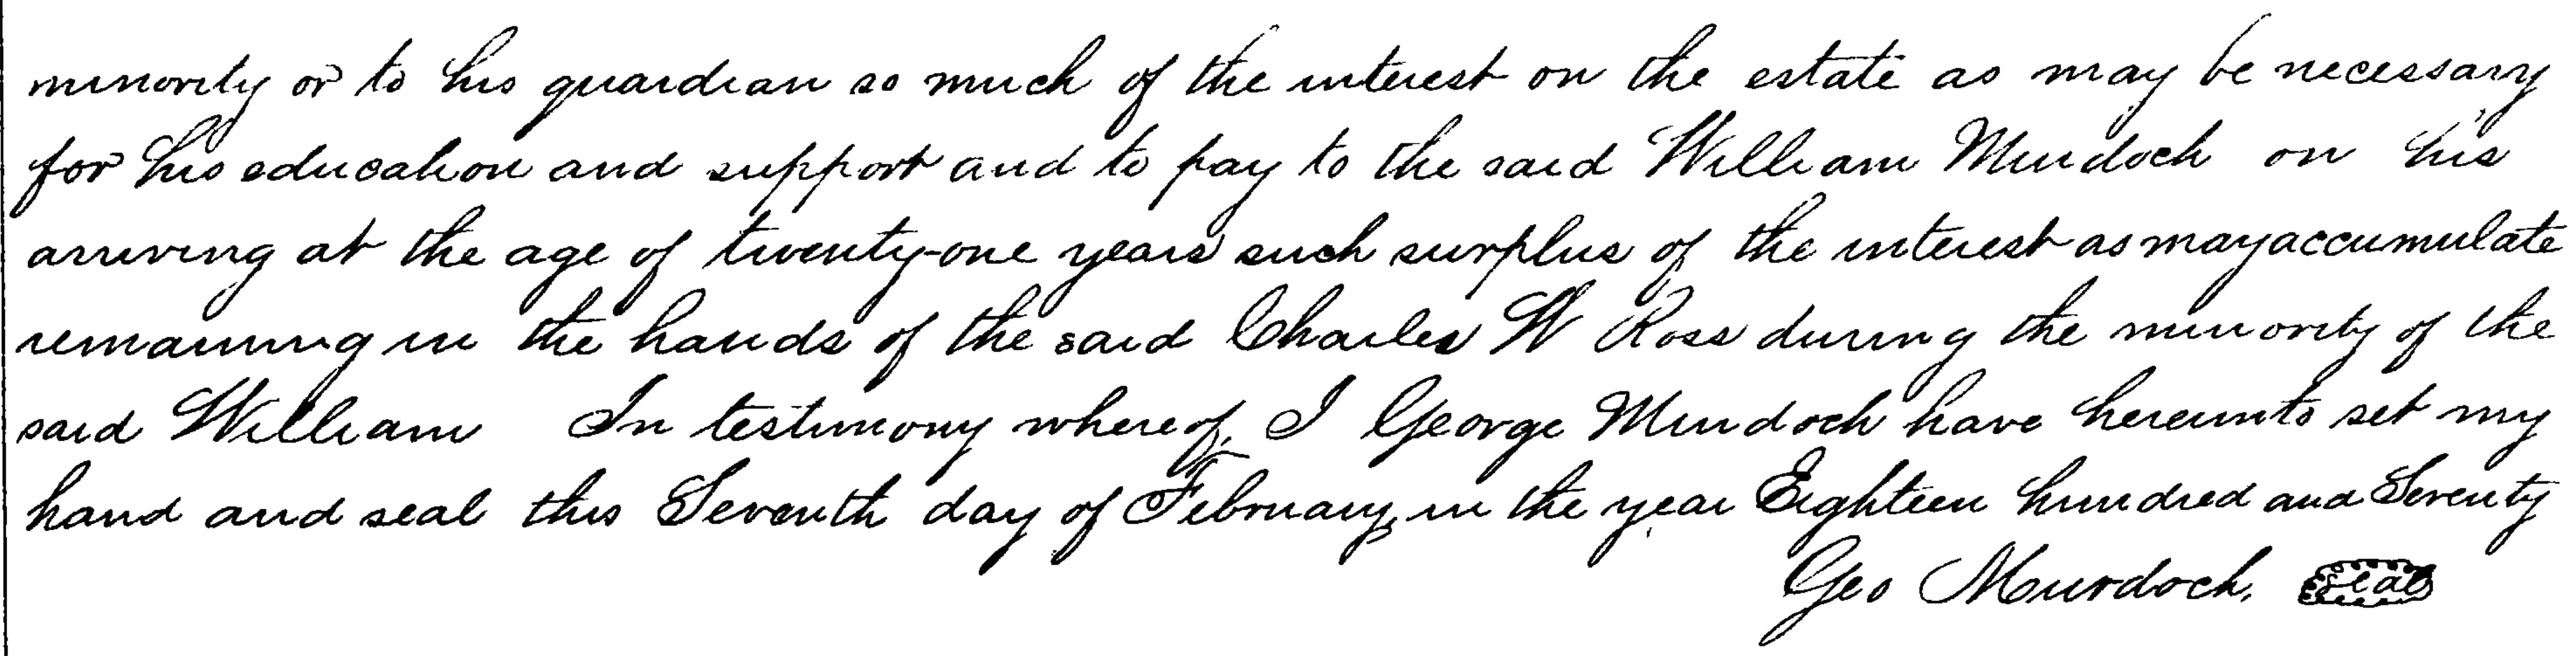 minority or to his guardian so much of the interest on the estate as may be necessary
for his education and support and to pay to the said William Murdoch on his
arriving at the age of twenty-one years such surplus of the interest as may accumulate
remaining in the hands of the said Charles W Ross during the minority of the
said William In testimony whereof, I George Murdoch have hereunto set my
hand and seal this Seventh day of February, in the year Eighteen hundred and Seventy
Geo Murdoch. Seal